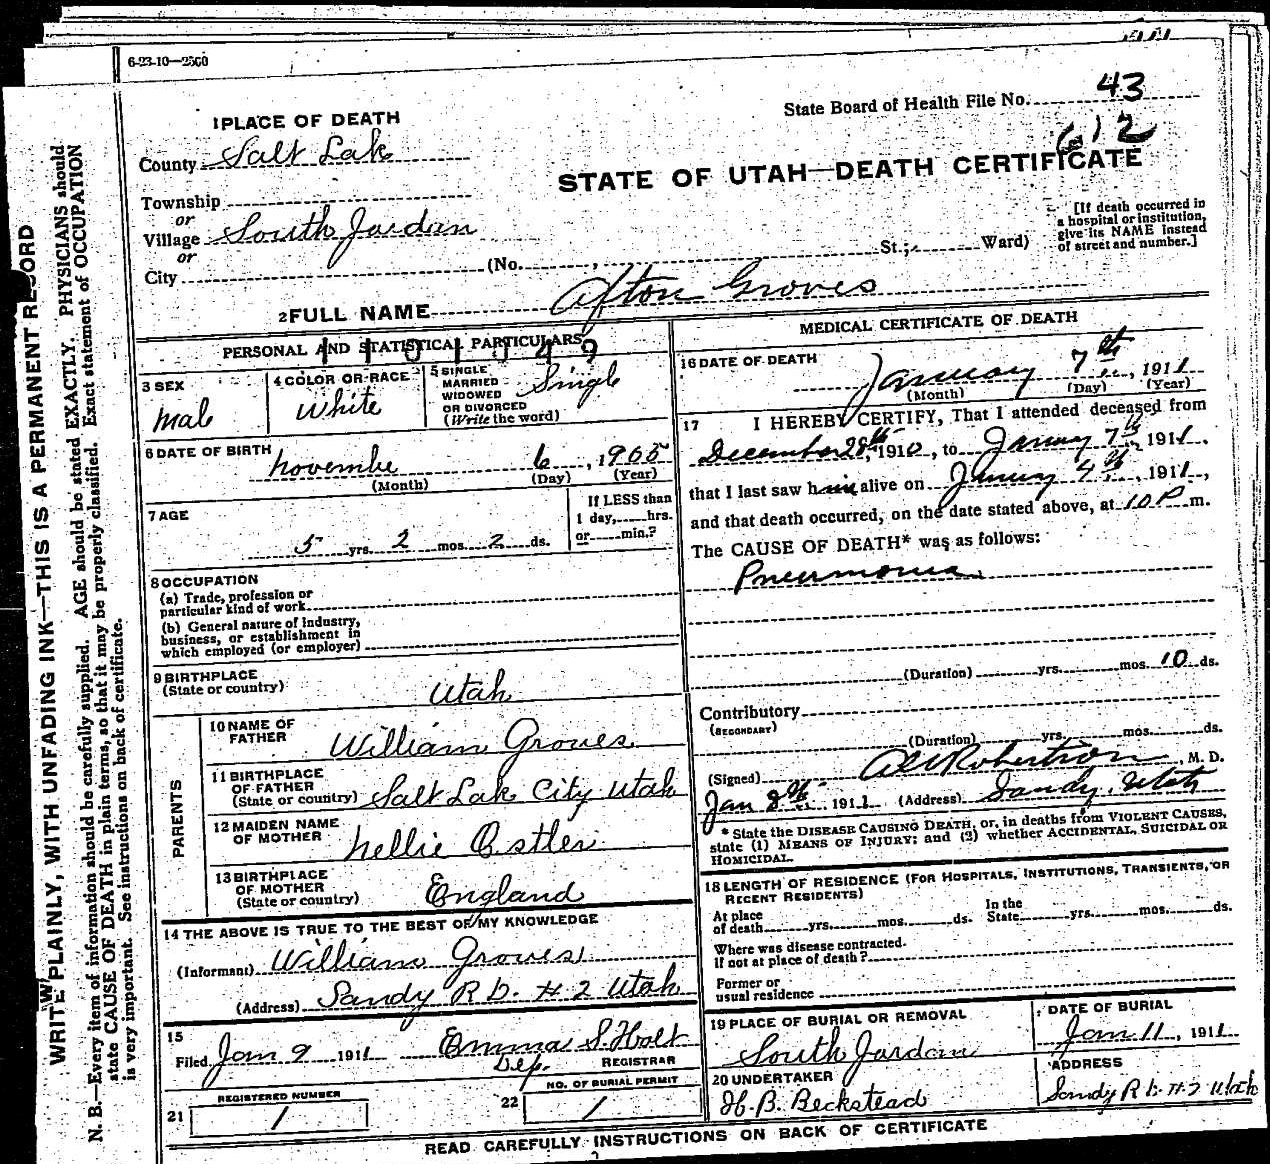 6-23-10—2500
State Board of Health File No. 43
612
1 PLACE OF DEATH
County Salt Lake
STATE OF UTAH—DEATH CERTIFICATE
Township
or
Village South Jordan
or
City (No. , St.; Ward)
[If death occurred in
a hospital or institution,
give its NAME instead
of street and number.]
2 FULL NAME Afton Groves
PERSONAL AND STATISTICAL PARTICULARS
3 SEX
Male
4 COLOR OR RACE
White
5 SINGLE
MARRIED
WIDOWED
OR DIVORCED
(Write the word)
Single
6 DATE OF BIRTH
November 6, 1905
(Month) (Day) (Year)
7 AGE
5 yrs. 2 mos. 2 ds.
If LESS than
1 day, hrs.
or min.?
8 OCCUPATION
(a) Trade, profession or
particular kind of work
(b) General nature of industry,
business, or establishment in
which employed (or employer)
9 BIRTHPLACE
(State or country) Utah
PARENTS
10 NAME OF
FATHER William Groves
11 BIRTHPLACE
OF FATHER
(State or country) Salt Lake City Utah
12 MAIDEN NAME
OF MOTHER Nellie Ostler
13 BIRTHPLACE
OF MOTHER
(State or country) England
14 THE ABOVE IS TRUE TO THE BEST OF MY KNOWLEDGE
(Informant) William Groves
(Address) Sandy R D. # 2 Utah
15
Filed Jan 9 1911 Emma S. Holt
Dep. REGISTRAR
21 REGISTERED NUMBER
1
22 NO. OF BURIAL PERMIT
1
MEDICAL CERTIFICATE OF DEATH
16 DATE OF DEATH
January 7th, 1911
(Month) (Day) (Year)
17 I HEREBY CERTIFY, That I attended deceased from
December 28th, 1910, to January 7th, 1911,
that I last saw him alive on January 4th, 1911,
and that death occurred, on the date stated above, at 10 P m.
The CAUSE OF DEATH* was as follows:
Pneumonia
(Duration) yrs. mos. 10 ds.
Contributory
(SECONDARY)
(Duration) yrs. mos. ds.
(Signed) Robertson, M. D.
Jan 8th 1911 (Address) Sandy, Utah
* State the DISEASE CAUSING DEATH, or, in deaths from VIOLENT CAUSES,
state (1) MEANS OF INJURY; and (2) whether ACCIDENTAL, SUICIDAL OR
HOMICIDAL.
18 LENGTH OF RESIDENCE (FOR HOSPITALS, INSTITUTIONS, TRANSIENTS, OR
RECENT RESIDENTS)
At place
of death yrs. mos. ds.
In the
State yrs. mos. ds.
Where was disease contracted.
if not at place of death?
Former or
usual residence
19 PLACE OF BURIAL OR REMOVAL
South Jordan
DATE OF BURIAL
Jan 11, 1911
20 UNDERTAKER
H. B. Beckstead
ADDRESS
Sandy R D # 2 Utah
READ CAREFULLY INSTRUCTIONS ON BACK OF CERTIFICATE
WRITE PLAINLY, WITH UNFADING INK—THIS IS A PERMANENT RECORD
N. B.—Every item of information should be carefully supplied. AGE should be stated EXACTLY. PHYSICIANS should
state CAUSE OF DEATH in plain terms, so that it may be properly classified. Exact statement of OCCUPATION
is very important. See instructions on back of certificate.